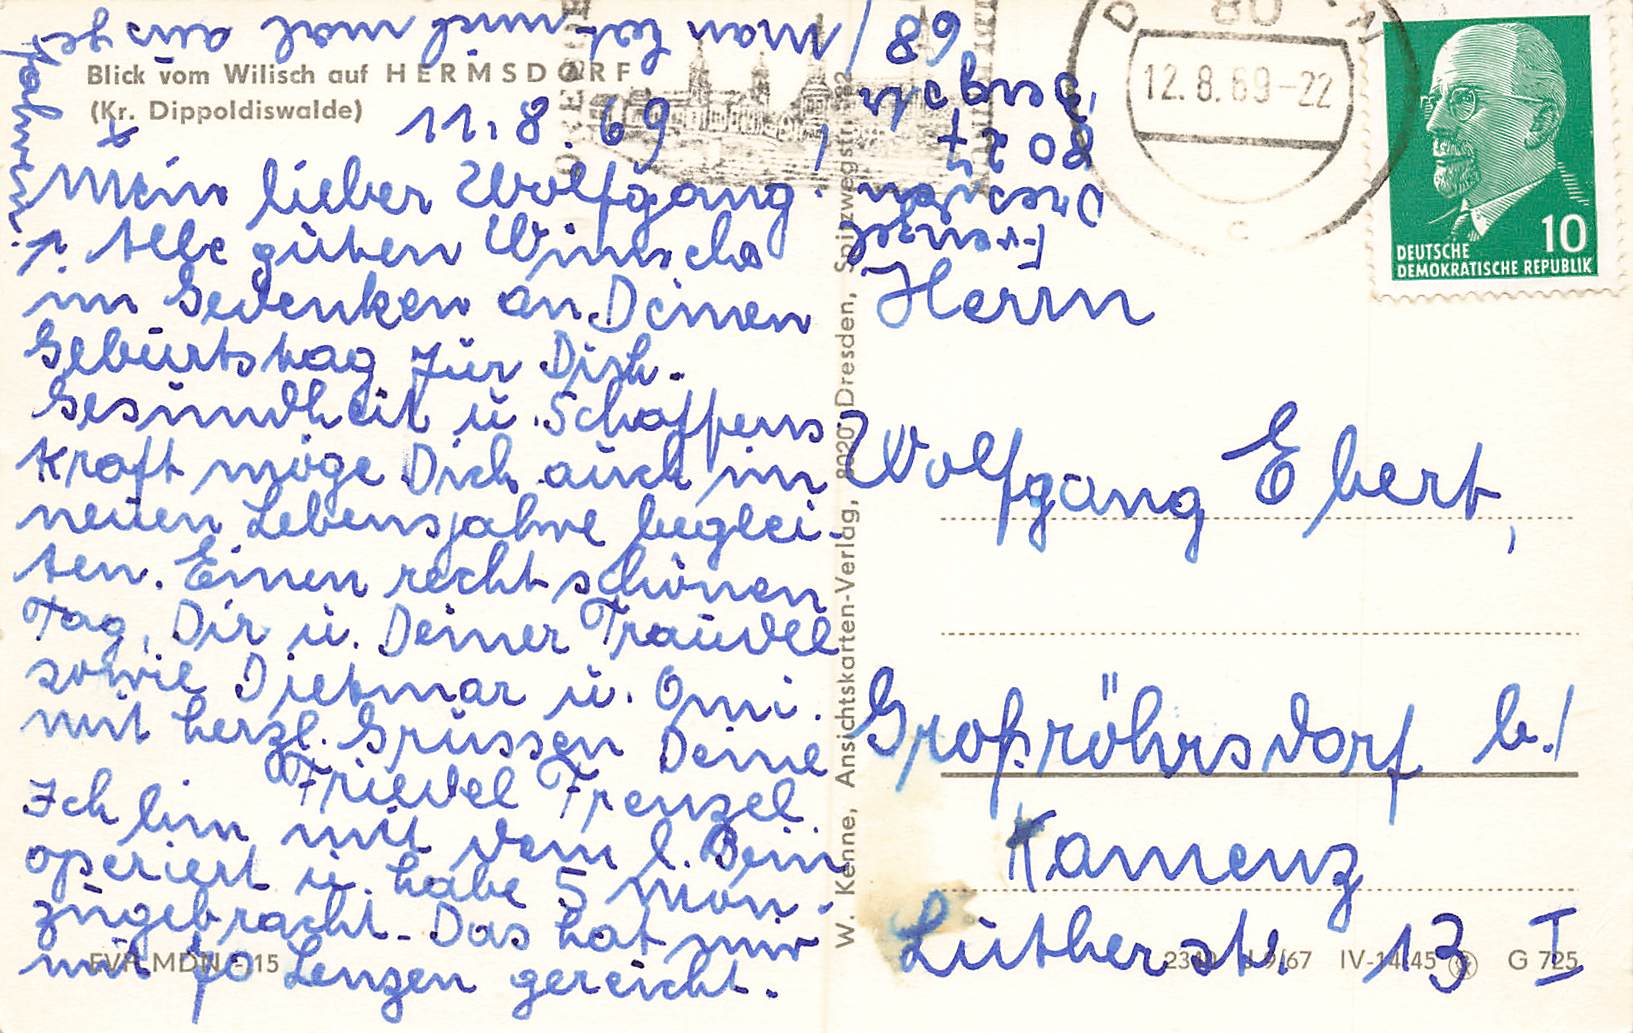 Blick vom Wilisch auf HERMSDORF
(Kr. Dippoldiswalde)
11.8.69
Mein lieber Wolfgang!
Alle guten Wünsche
im Gedenken an Deinen
Geburtstag für Dich.
Gesundheit u. Schaffens
kraft möge Dich auch im
neuen Lebensjahre beglei-
ten. Einen recht schönen
Tag, Dir u. Deiner Traudel
sowie Dietmar u. Omi.
mit herzl. Grüssen Deine
Friedel Frenzel.
Ich bin mit dem l. Bein
operiert u. habe 5 Mon.
zugebracht. Das hat mir
mit 70 Lenzen gereicht.
Man hat mich mal
Frenzel
Dresden
8027
68
W. Kenne, Ansichtskarten-Verlag, 8020 Dresden, Spitzwegstr.
12.8.69-22
10
DEUTSCHE
DEMOKRATISCHE REPUBLIK
Herrn
Wolfgang Ebert,
Großröhrsdorf b./
Kamenz
Lutherstr. 13 I
EVP MDN -.15
IV-14-45 G 725